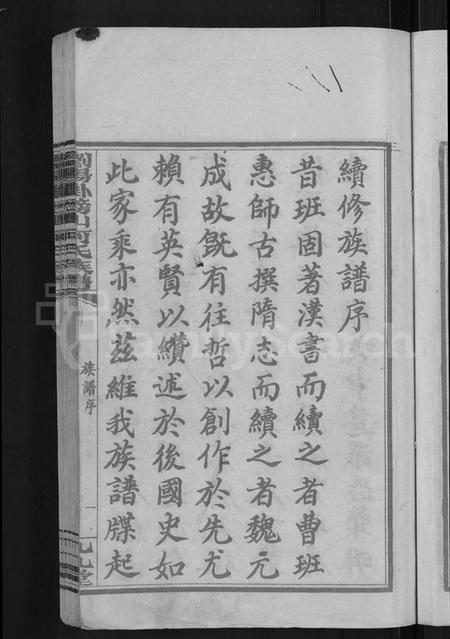 續修族譜序
昔班固著漢書而續之者曹班
惠師古撰隋志而續之者魏元
成故既有往哲以創作於先尤
賴有英賢以纘述於後國史如
此家乘亦然茲維我族譜牒起
族譜序
一
FamilySearch